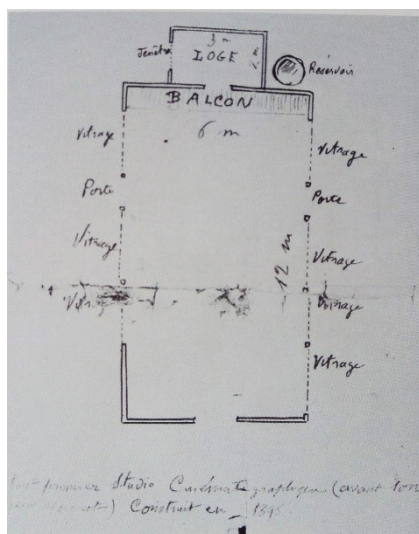 3 m
Fenêtre LOGE
Réservoir
BALCON
6 m
Vitrage Vitrage
Porte Porte
Vitrage Vitrage
12 m
Vitrage
Vitrage
premier Studio Cinématographique (avant son
Construit en